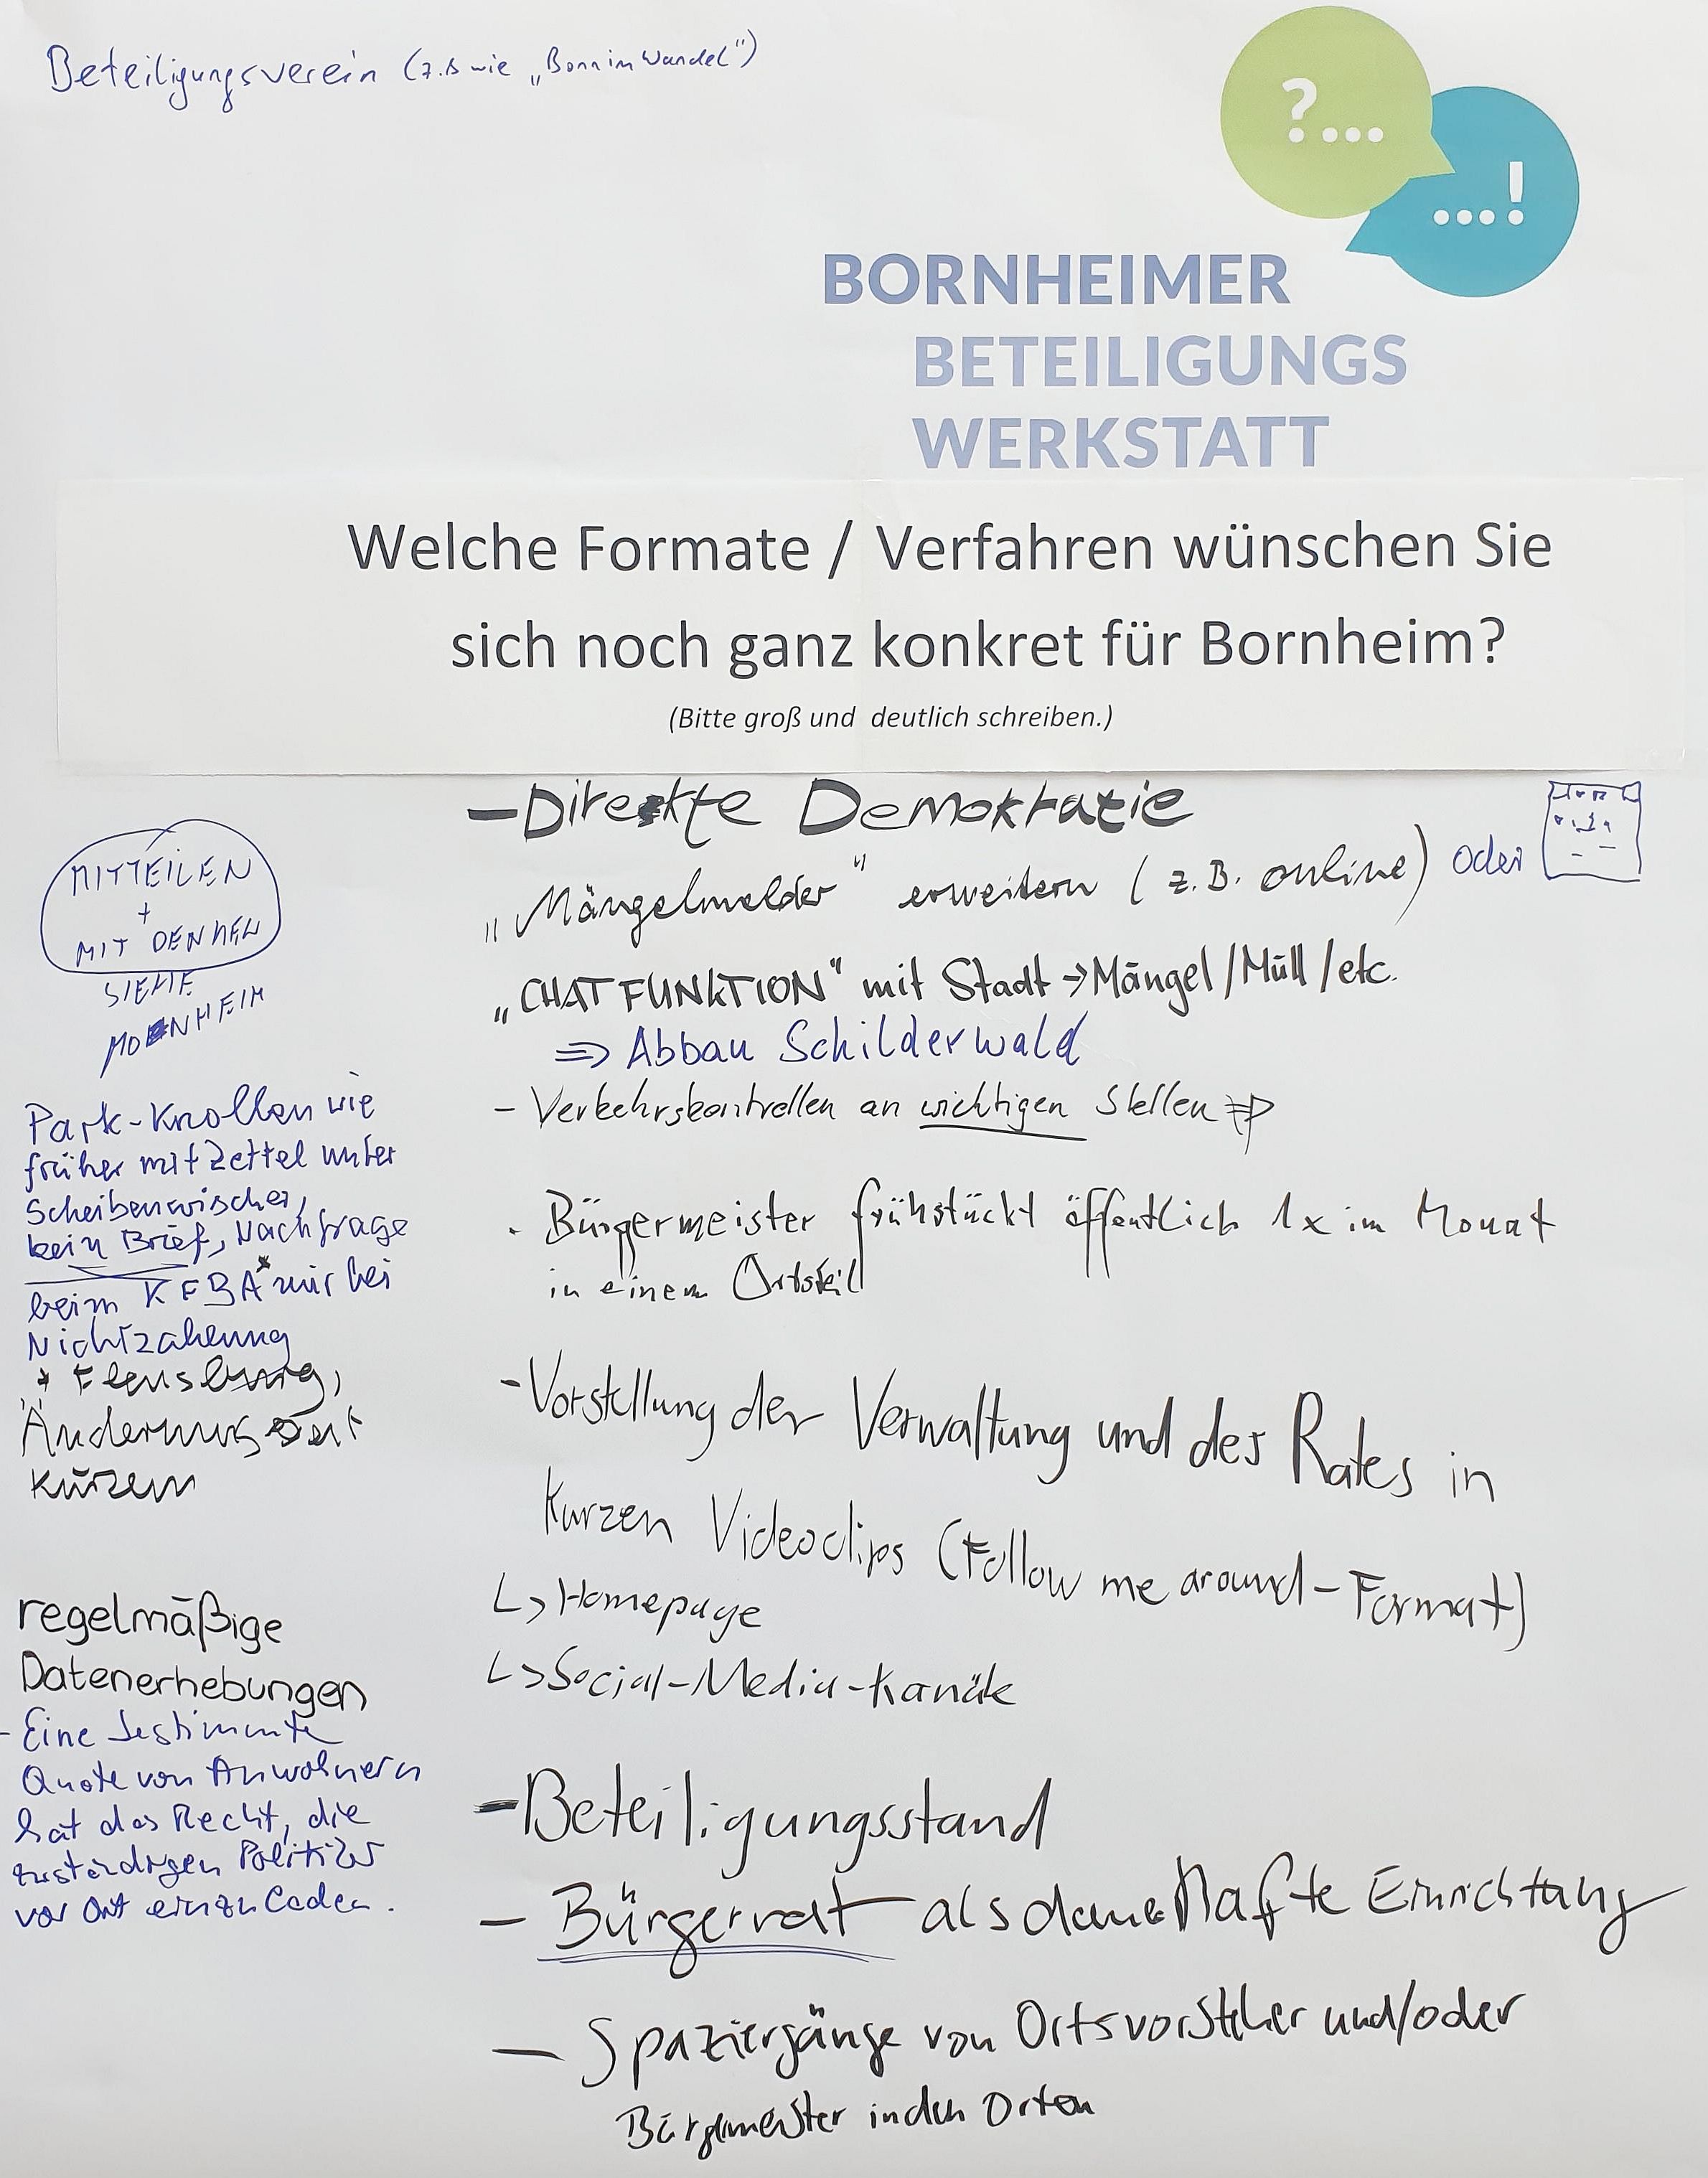 Beteiligungsverein (z.B wie „Bonn im Wandel")
?...
...!
BORNHEIMER
BETEILIGUNGS
WERKSTATT
Welche Formate / Verfahren wünschen Sie
sich noch ganz konkret für Bornheim?
(Bitte groß und deutlich schreiben.)
- Direkte Demokratie
„Mängelmelder" erweitern (z.B. online) oder
„CHATFUNKTION" mit Stadt → Mängel/Müll/etc.
⇒ Abbau Schilderwald
- Verkehrskontrollen an wichtigen Stellen ⇒
- Bürgermeister frühstückt öffentlich 1x im Monat
in einem Ortsteil
- Vorstellung der Verwaltung und des Rates in
kurzen Videoclips (Follow me around-Format)
↳ Homepage
↳ Social-Media-Kanäle
- Beteiligungsstand
- Bürgerrat als dauerhafte Einrichtung
- Spaziergänge von Ortsvorsteher und/oder
Bürgermeister in den Orten
MITTEILEN
+
MIT DENKEN
SIEHE
MONHEIM
Park-Knollen wie
früher mit Zettel unter
Scheibenwischer,
kein Brief, Nachfrage
beim KFBA* nur bei
Nichtzahlung
* Flensburg,
Änderungszeit
kürzen
regelmäßige
Datenerhebungen
- Eine bestimmte
Quote von Anwohnern
hat das Recht, die
zuständigen Politiker
vor Ort einzuladen.